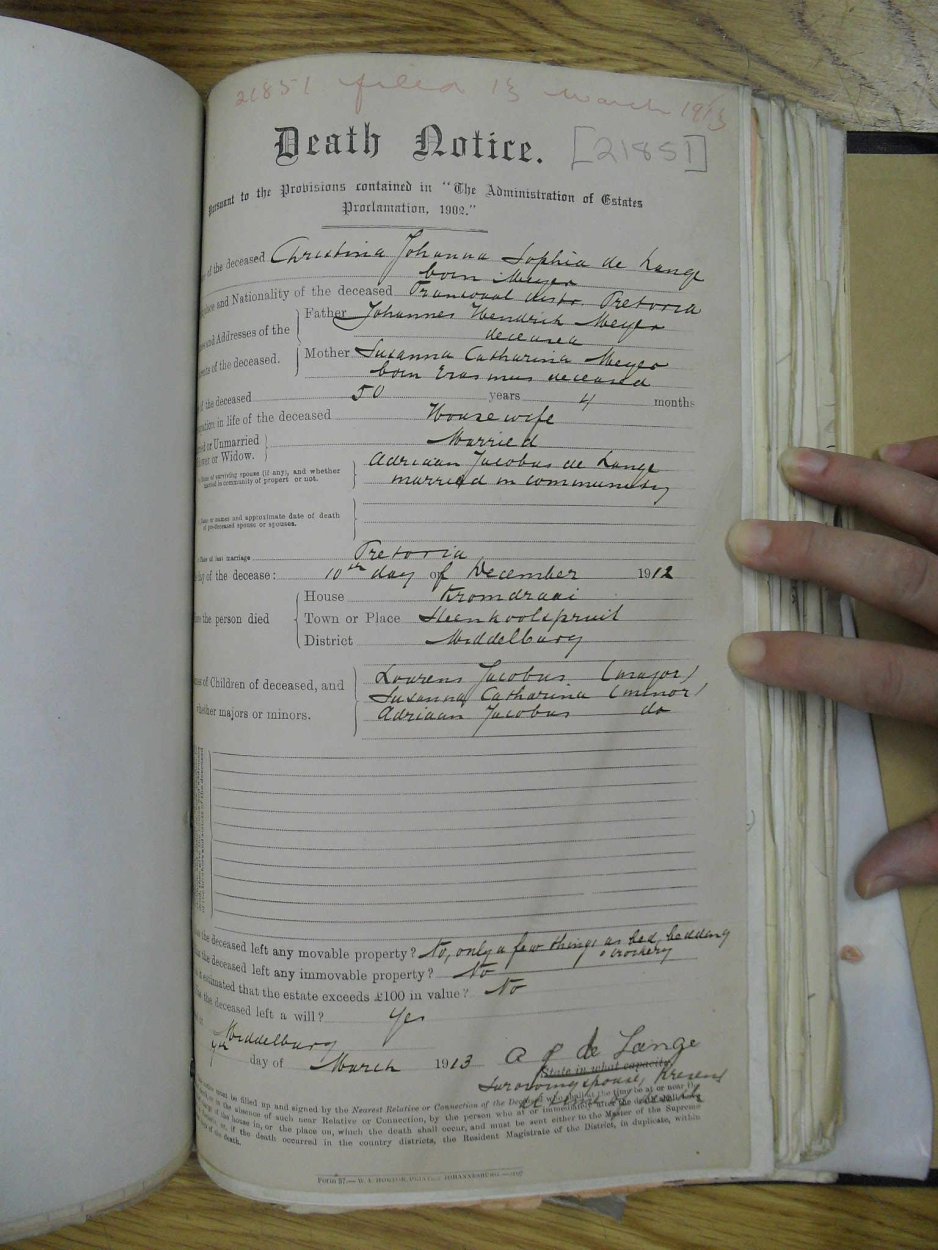 21851 filed 13 March 1913
Death Notice. [21851]
Pursuant to the Provisions contained in "The Administration of Estates
Proclamation, 1902."
of the deceased Christina Johanna Sophia de Lange
born Meyer
place and Nationality of the deceased Transvaal distr. Pretoria
and Addresses of the Father Johannes Hendrik Meyer
deceased
of the deceased. Mother Susanna Catharina Meyer
born Erasmus deceased
of the deceased 50 years 4 months
in life of the deceased Housewife
or Unmarried Married
or Widow.
of surviving spouse (if any), and whether Adriaan Jacobus de Lange
married in community of property or not. married in community
or names and approximate date of death
of pre-deceased spouse or spouses.
Place of last marriage Pretoria
day of the decease: 10th day of December 1912
House Kromdraai
the person died Town or Place Steenkoolspruit
District Middelburg
of Children of deceased, and Lourens Jacobus (major)
Susanna Catharina (minor)
whether majors or minors. Adriaan Jacobus do
the deceased left any movable property? No, only a few things as bed, bedding
crockery
the deceased left any immovable property? No
estimated that the estate exceeds £100 in value? No
the deceased left a will? Yes
Middelburg
7th day of March 1913 A J de Lange
State in what capacity
Surviving spouse, present
must be filled up and signed by the Nearest Relative or Connection of the Deceased
the absence of such near Relative or Connection, by the person who at or immediately after the death
of the house in, or the place on, which the death shall occur, and must be sent either to the Master of the Supreme
if the death occurred in the country districts, the Resident Magistrate of the District, in duplicate, within
of the death.
Form 37.